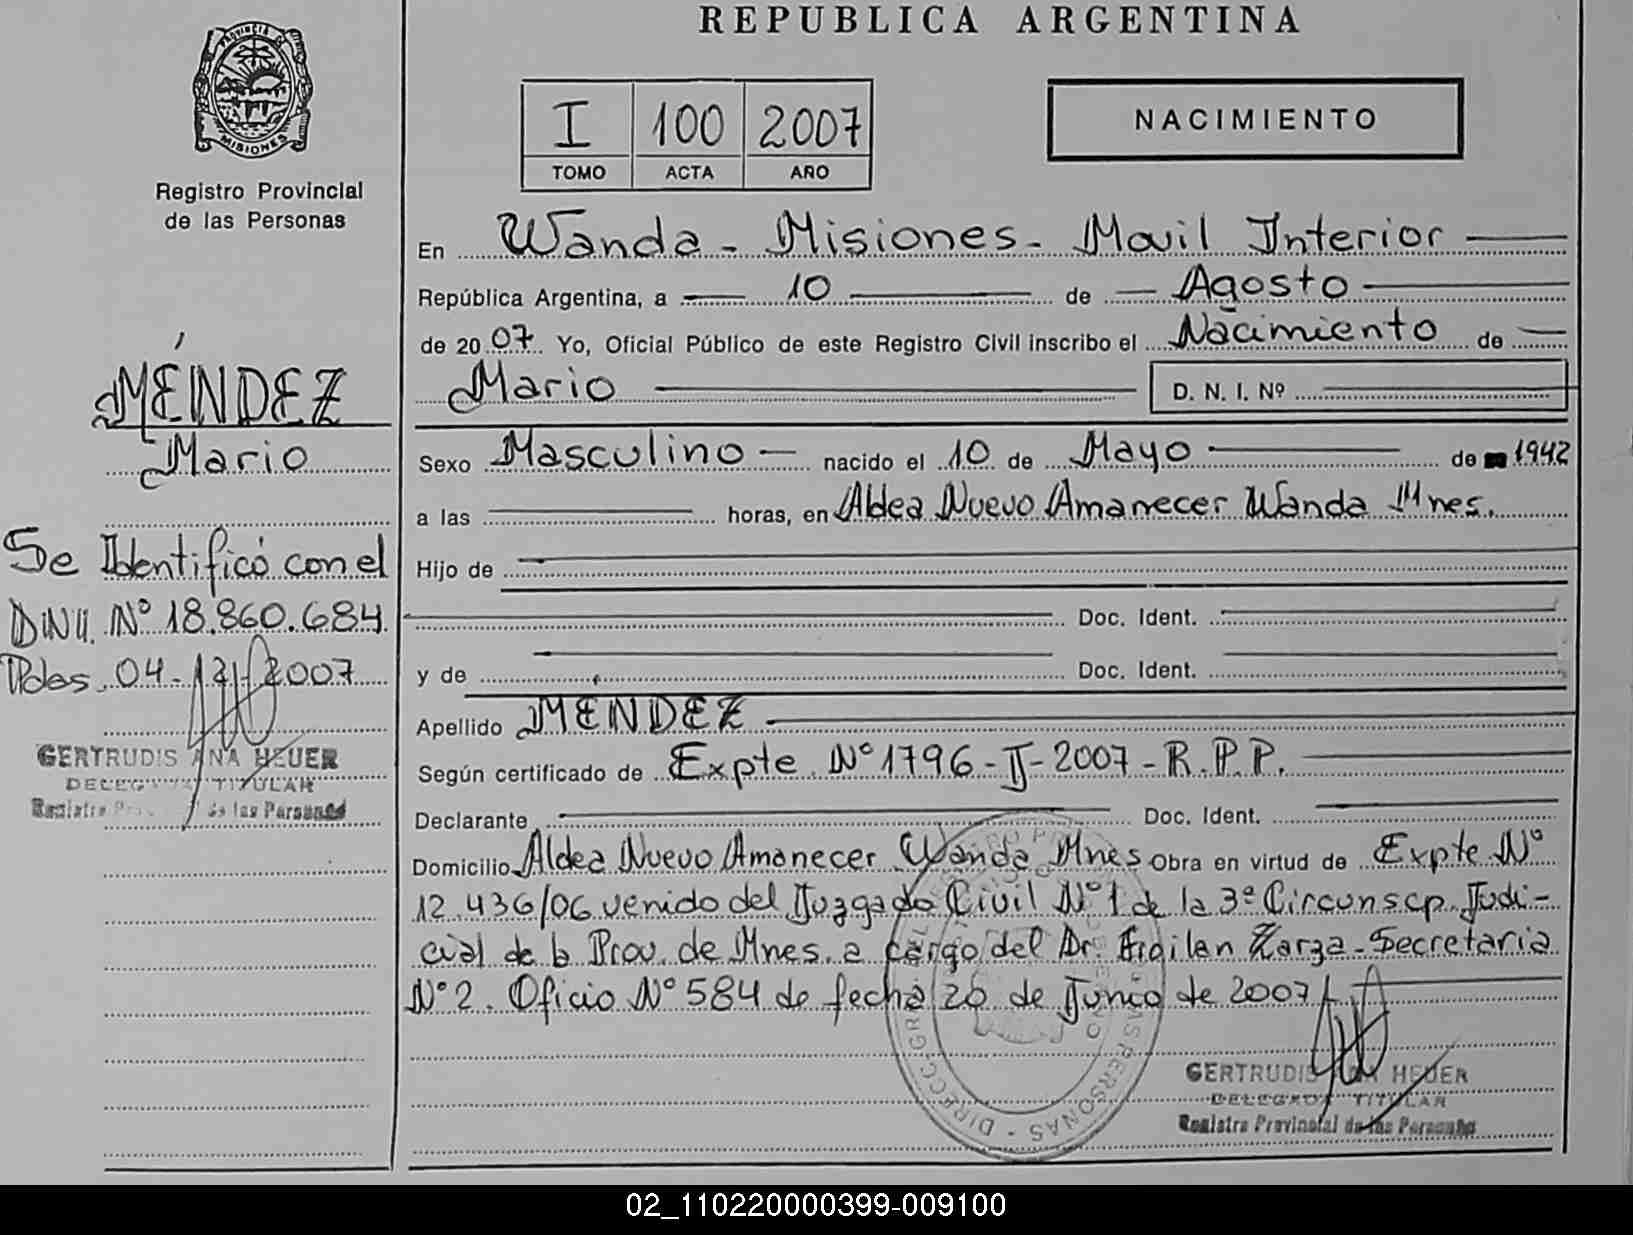 REPUBLICA ARGENTINA
PROVINCIA DE
MISIONES
Registro Provincial
de las Personas
I 100 2007
TOMO ACTA AÑO
NACIMIENTO
En Wanda - Misiones - Movil Interior
República Argentina, a 10 de Agosto
de 2007 Yo, Oficial Público de este Registro Civil inscribo el Nacimiento de
Mario D. N. I. Nº
MÉNDEZ
Mario
Sexo Masculino nacido el 10 de Mayo de 1942
a las horas, en Aldea Nuevo Amanecer Wanda Mnes.
Hijo de
Doc. Ident.
y de Doc. Ident.
Se Identificó con el
D.N.I. Nº 18.860.684
Pdas. 04-12-2007
GERTRUDIS ANA HEUER
DELEGADA TITULAR
Registro Prov de las Personas
Apellido MENDEZ
Según certificado de Expte. Nº 1796-IJ-2007-R.P.P.
Declarante Doc. Ident.
Domicilio Aldea Nuevo Amanecer Wanda Mnes Obra en virtud de Expte Nº
12.436/06 venido del Juzgado Civil Nº 1 de la 3ª Circunscp. Judi-
cial de la Prov. de Mnes. a cargo del Dr. Froilan Zarza - Secretaria
Nº 2. Oficio Nº 584 de fecha 26 de Junio de 2007
GERTRUDIS ANA HEUER
DELEGADA TITULAR
Registro Provincial de las Personas
02_110220000399-009100